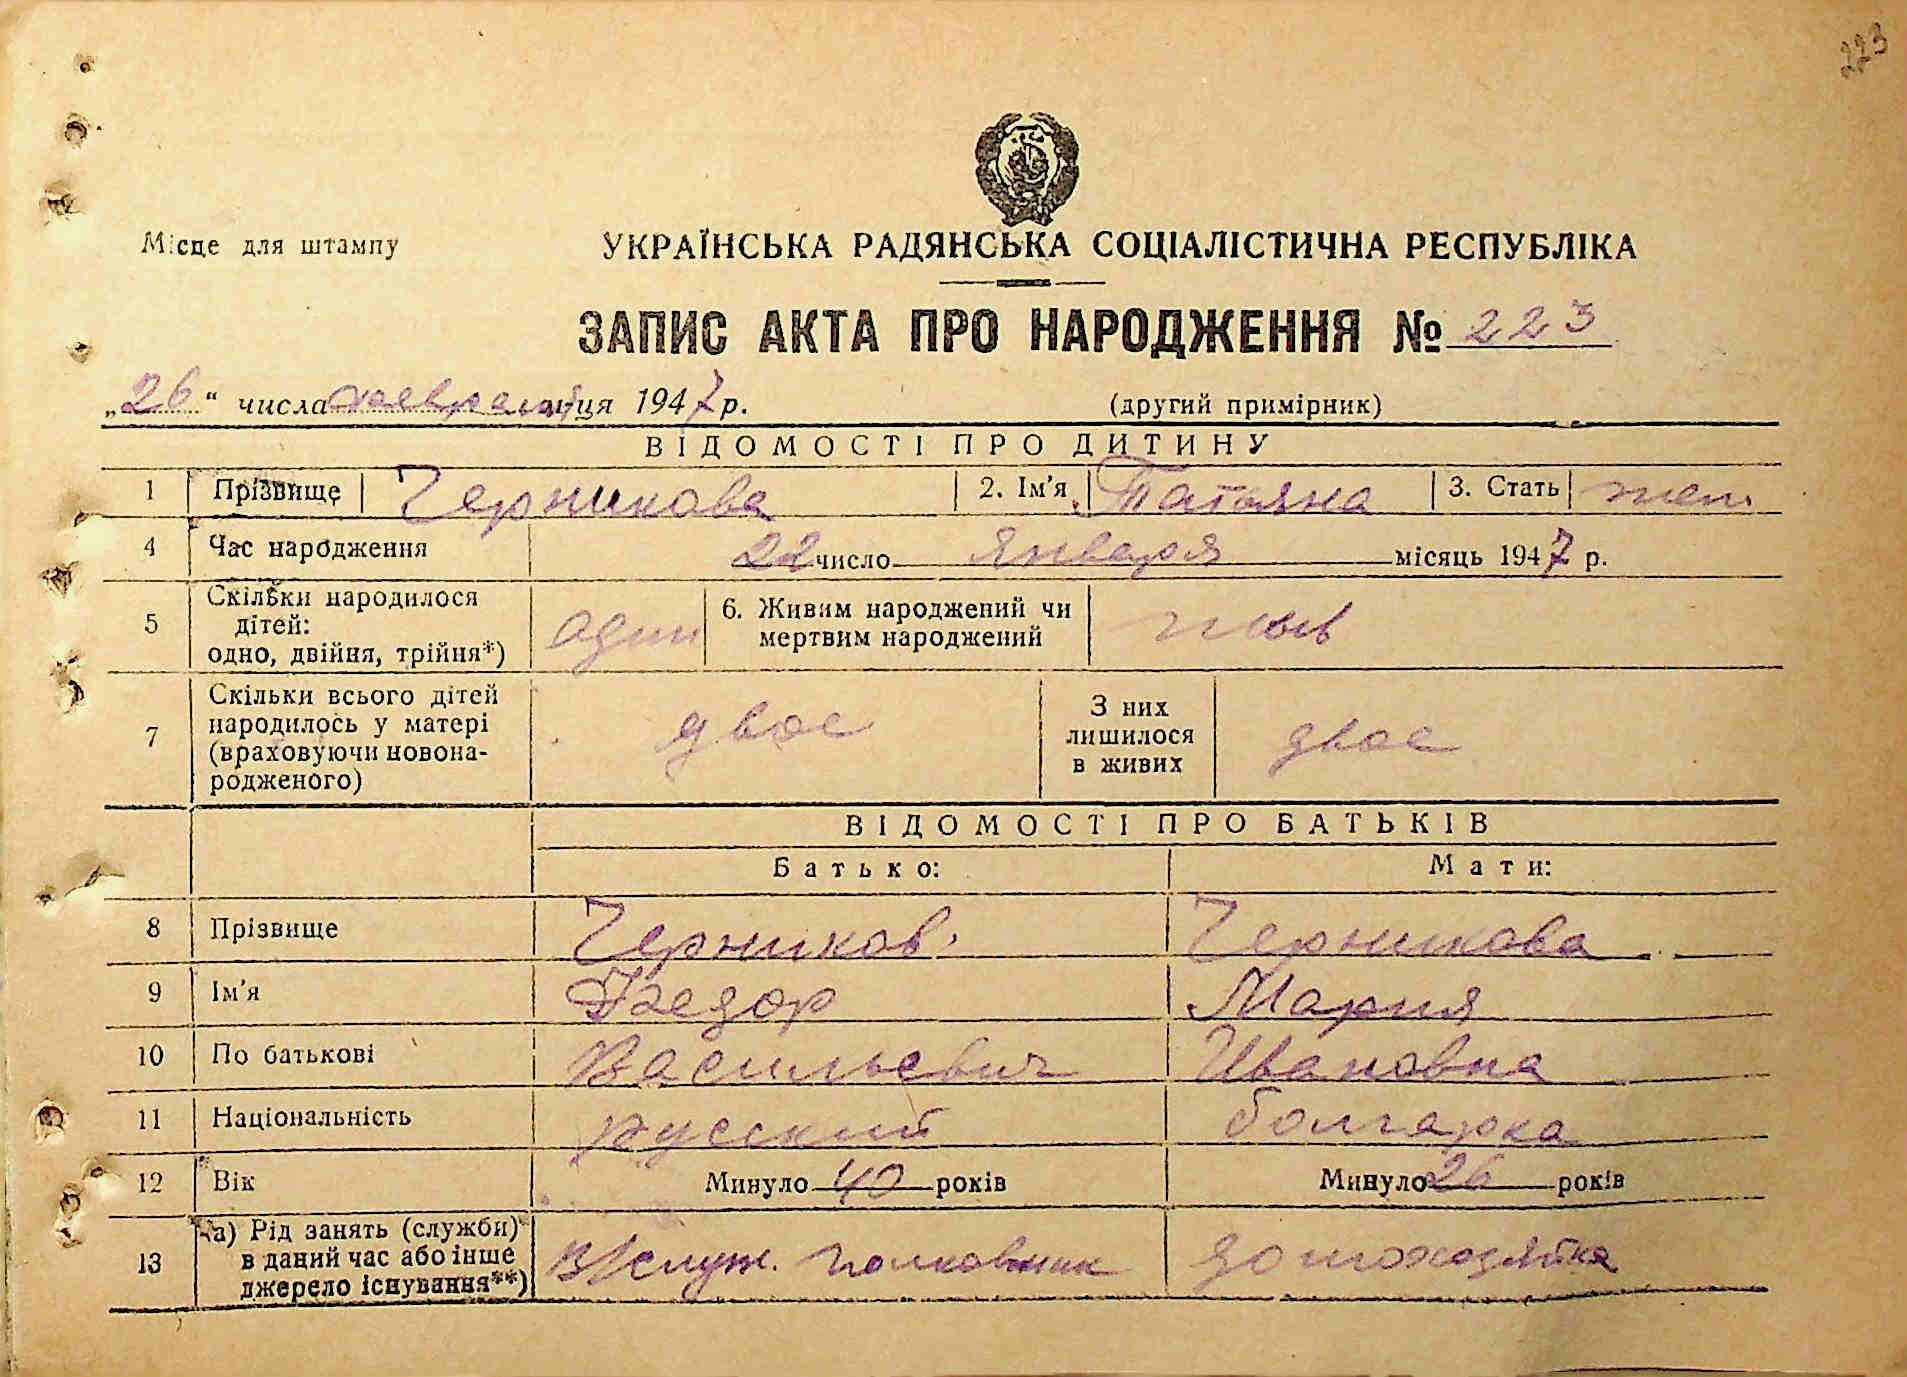 223
Місце для штампу
УКРАЇНСЬКА РАДЯНСЬКА СОЦІАЛІСТИЧНА РЕСПУБЛІКА
ЗАПИС АКТА ПРО НАРОДЖЕННЯ № 223
„26“ числа февраля м-ця 1947 р. (другий примірник)
ВІДОМОСТІ ПРО ДИТИНУ
1 Прізвище Черникова 2. Ім'я Татьяна 3. Стать жен.
4 Час народження 22 число января місяць 1947 р.
5 Скільки народилося
дітей:
одно, двійня, трійня*) один 6. Живим народжений чи
мертвим народжений жив
7 Скільки всього дітей
народилось у матері
(враховуючи новона-
родженого) двое З них
лишилося
в живих двое
ВІДОМОСТІ ПРО БАТЬКІВ
Батько: Мати:
8 Прізвище Черников Черникова
9 Ім'я Федор Мария
10 По батькові Васильевич Ивановна
11 Національність русский болгарка
12 Вік Минуло 40 років Минуло 26 років
13 а) Рід занять (служби)
в даний час або інше
джерело існування**) В/служ. полковник домохозяйка